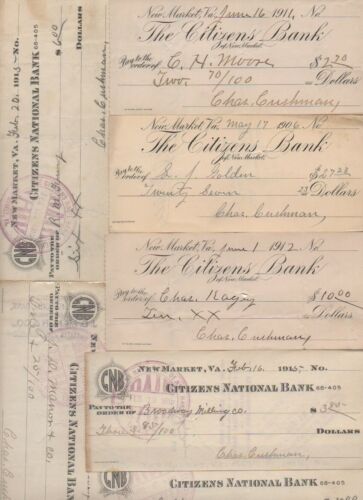 New Market, Va. June 16 1911, No
The Citizens Bank
of New Market.
Pay to the order of C. H. Moore $2.70
Two 70/100 Dollars
Chas. Cushman,
New Market, Va. May 17 1906 No
The Citizens Bank
of New Market.
Pay to the order of Golden
Twenty Seven Dollars
Chas. Cushman,
New Market, Va. June 1 1912 No
The Citizens Bank
of New Market.
Pay to the order of Chas. $10.00
Ten XX Dollars
Chas. Cushman,
New Market, Va. Feb. 16. 1915- No.
CNB
Citizens National Bank 68-405
Pay to the order of Broadway Milling Co. $3.85
Three & 85/100 Dollars
Chas. Cushman,
Citizens National Bank 68-405
New Market, Va. Feb. 20. 1915- No.
Citizens National Bank 68-405
CNB
Pay to the order of $6.00
Six XX Dollars
Chas. Cushman,
CNB
Citizens National Bank
Pay to the order of
& Co.
20/100
Chas.